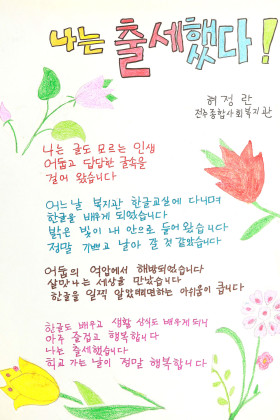 나는 출세했다!
허정란
전주종합사회복지관
나는 글도 모르는 인생
어둡고 답답한 글속을
걸어 왔습니다
어느날 복지관 한글교실에 다니며
한글을 배우게 되었습니다
밝은 빛이 내 안으로 들어왔습니다
정말 기쁘고 날아 갈 것 같았습니다
어둠의 억압에서 해방되었습니다
살맛나는 세상을 만났습니다
한글을 일찍 알았더라면하는 아쉬움이 큽니다
한글도 배우고 생활 상식도 배우게 되니
아주 즐겁고 행복합니다
나는 출세했습니다
학교 가는 날이 정말 행복합니다